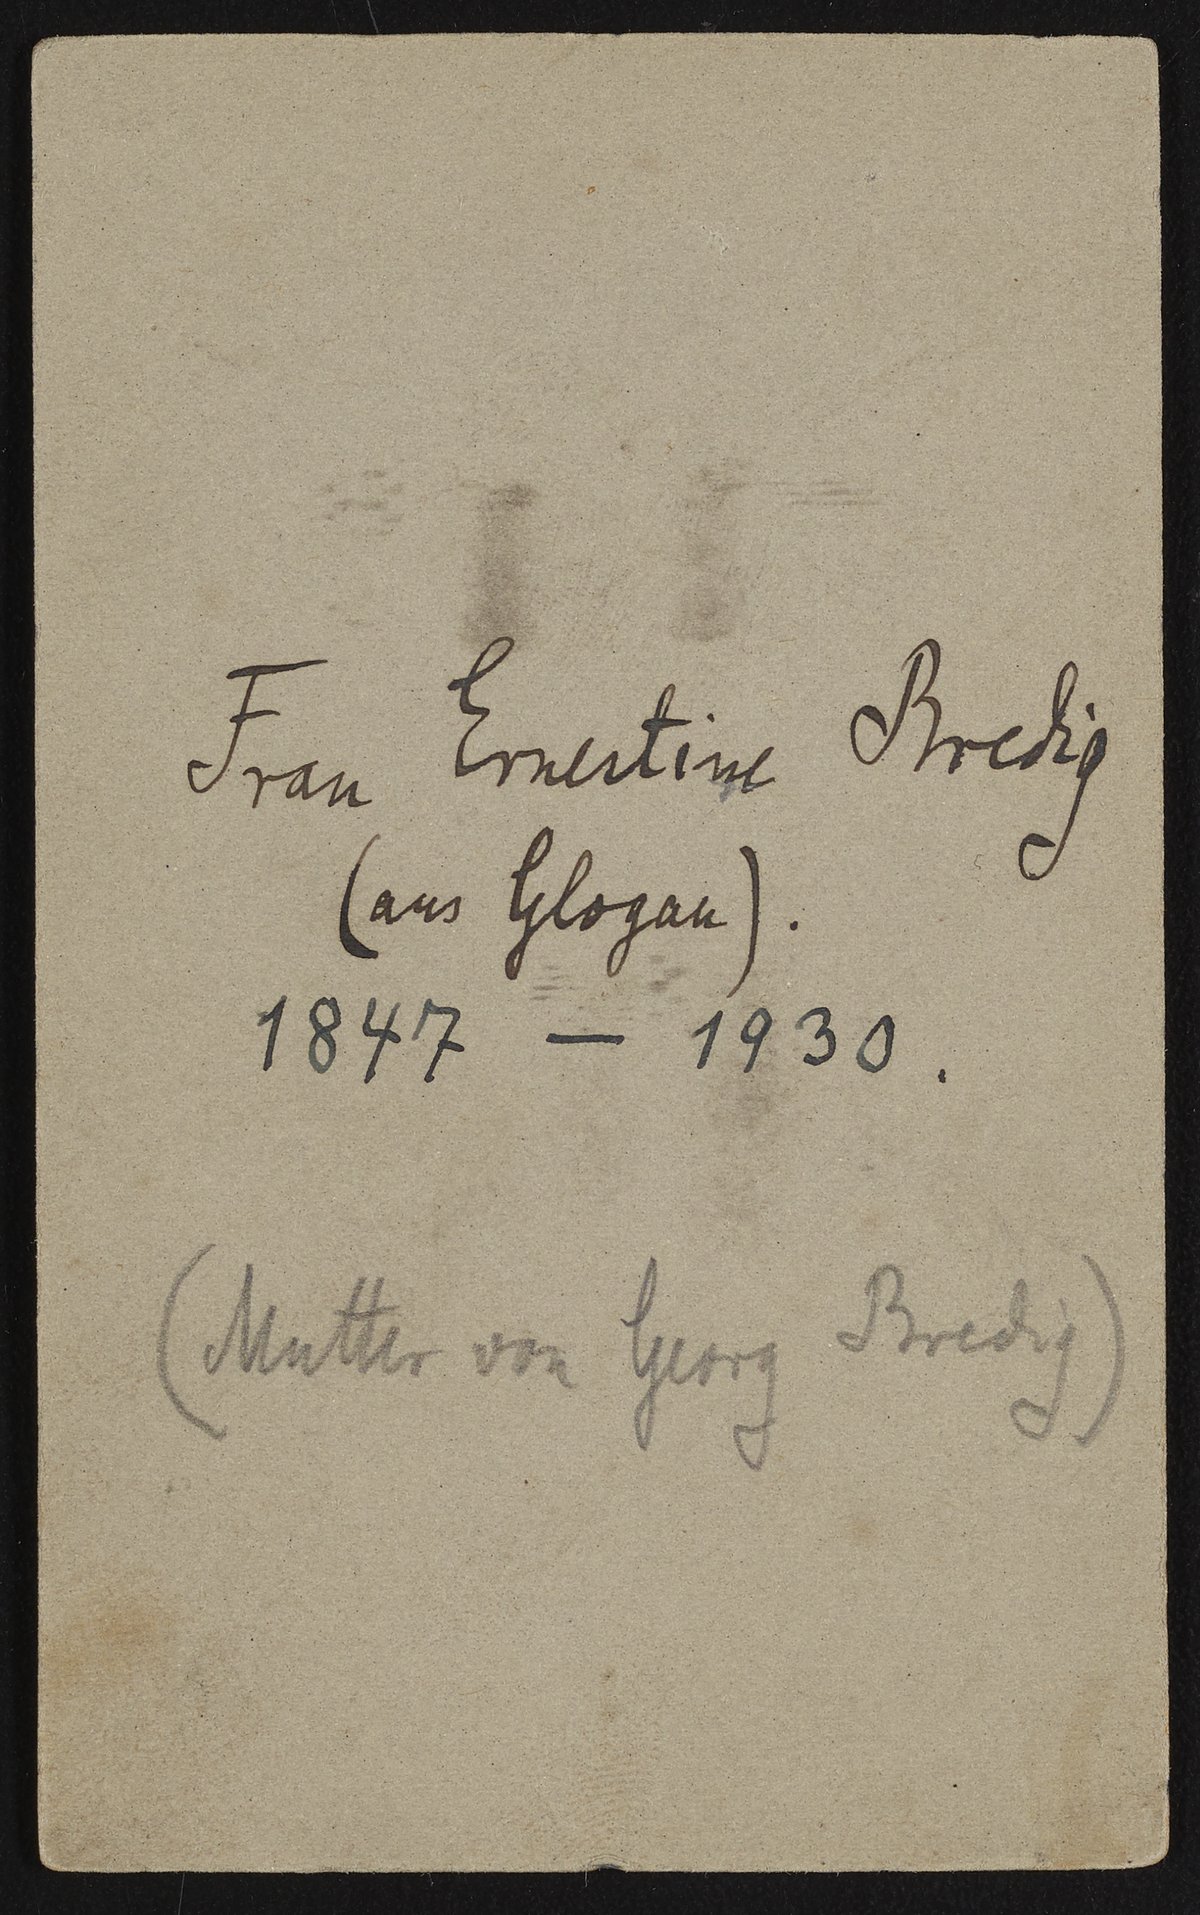 Frau Ernestine Bredig
(aus Glogau).
1847 — 1930.
(Mutter von Georg Bredig)